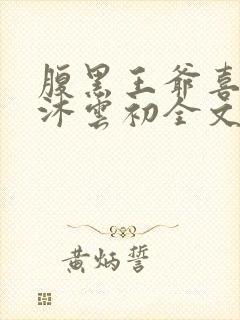 腹黑王爷喜
沐雲初全文
黄炳誓